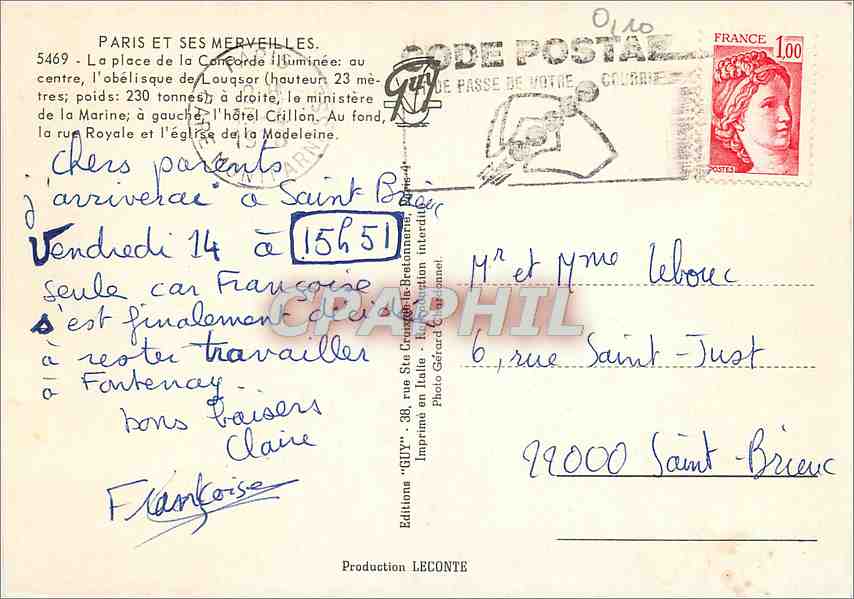 PARIS ET SES MERVEILLES.
5469 - La place de la Concorde illuminée: au
centre, l'obélisque de Louqsor (hauteur: 23 mè-
tres; poids: 230 tonnes) à droite, le ministère
de la Marine; à gauche, l'hôtel Crillon. Au fond,
la rue Royale et l'église de la Madeleine.
0,10
CODE POSTAL
DE PASSE DE VOTRE COURRIER
Guy
FRANCE 1,00
POSTES
PARIS
GARE MONTPARN
chers parents
j'arriverai à Saint Brieuc
Vendredi 14 à 15h51
seule car Françoise
s'est finalement décidée
à rester travailler
à Fontenay.
bons baisers
Claire
Françoise
Editions "GUY" - 38, rue Ste Croix-de-la-Bretonnerie, Paris-4
Imprimé en Italie - Reproduction interdite
Photo Gérard Chardonnel.
CPAPHIL
Mr et Mme Lebouc
6, rue Saint-Just
22000 Saint-Brieuc
Production LECONTE